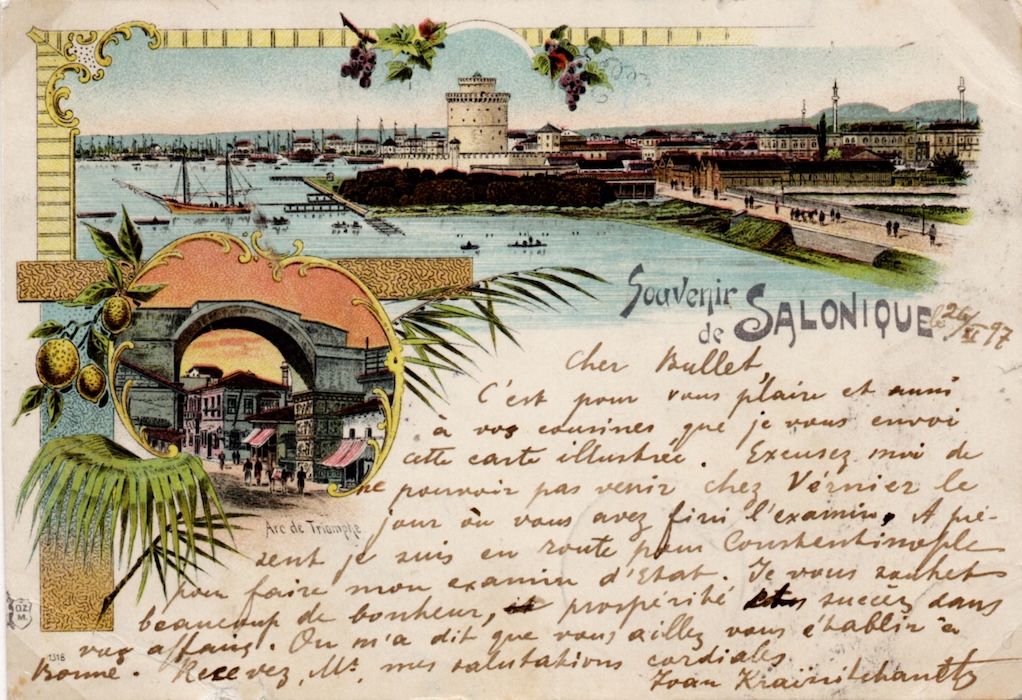 Souvenir
de SALONIQUE
le 26/XI 97
Cher Bullet,
C'est pour vous plaire et aussi
à vos cousines que je vous envoi
cette carte illustrée. Excusez moi de
ne pouvoir pas venir chez Vernier le
jour où vous avez fini l'examin. A pré-
sent je suis en route pour Constentinople
pour faire mon examin d'Etat. Je vous souhet
beaucoup de bonheur, prosperité succez dans
vos affairs. On m'a dit que vous aillez vous établir à
Bonne. Recevez, Mr. mes salutations cordiales
Ivan
Arc de Triomphe
O.Z.
M.
1318